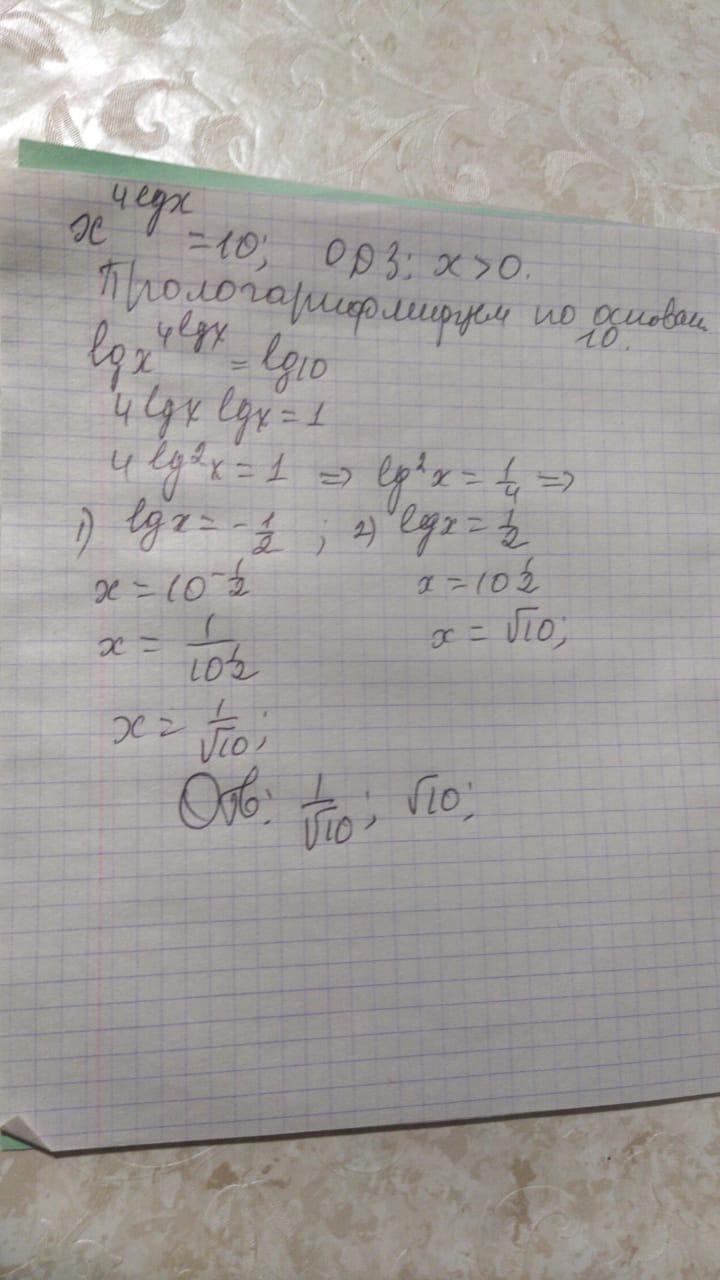 x^{4lgx} = 10; ОДЗ: x > 0.
Прологарифмируем по основан.
10.
lgx^{4lgx} = lg10
4lgx lgx = 1
4lg²x = 1 ⇒ lg²x = 1/4 ⇒
1) lgx = -1/2 ; 2) lgx = 1/2
x = 10^{-1/2} x = 10^{1/2}
x = 1/10^{1/2} x = √10;
x = 1/√10;
Отв: 1/√10; √10;